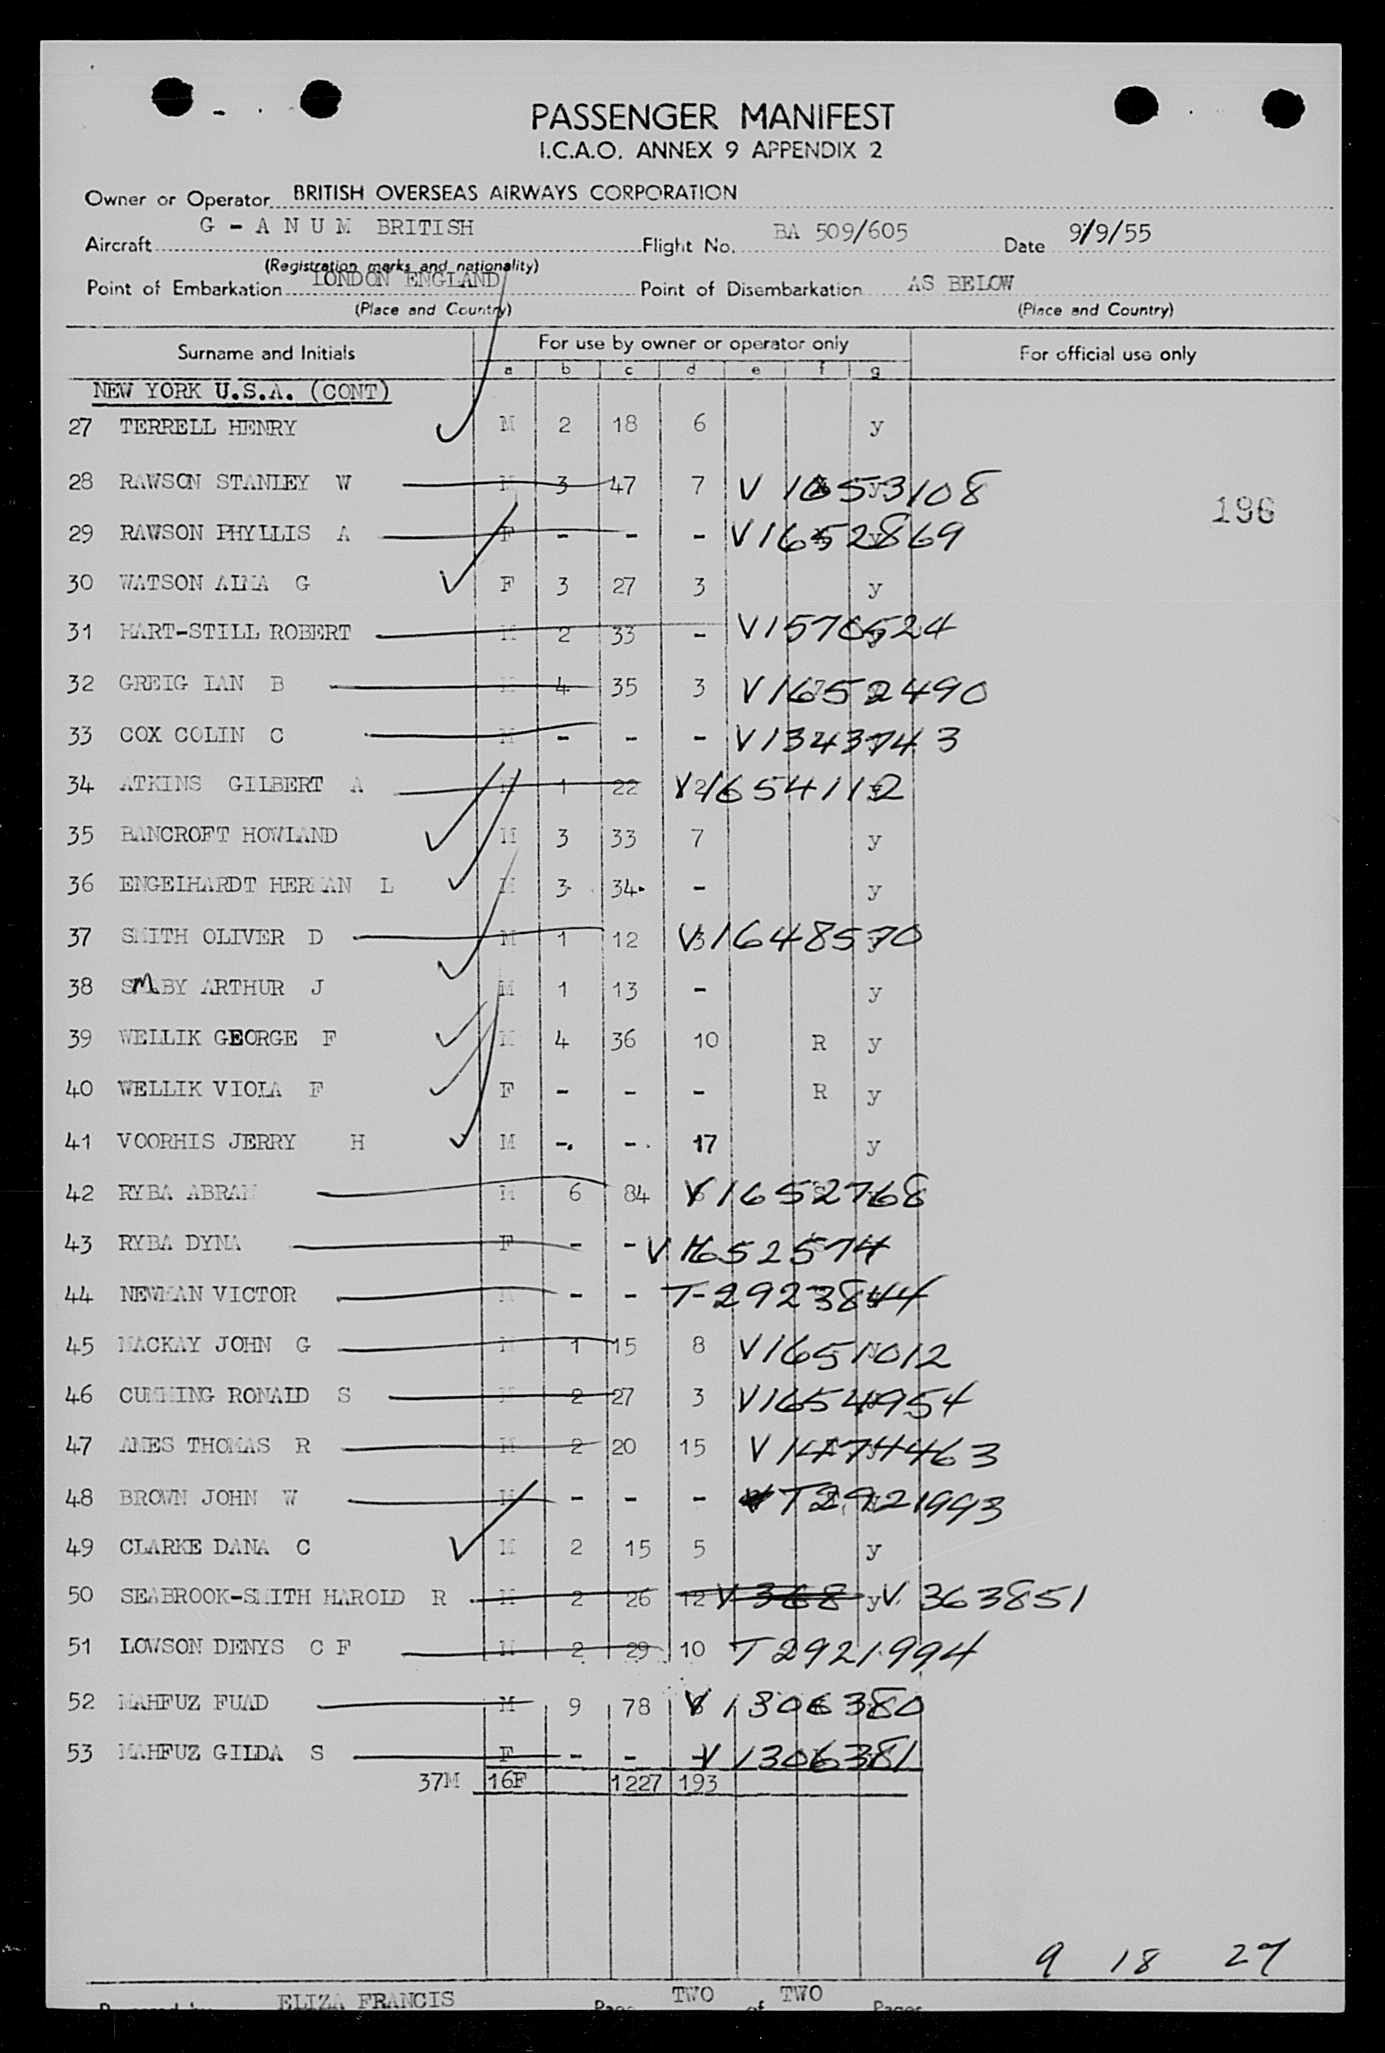 PASSENGER MANIFEST
I.C.A.O. ANNEX 9 APPENDIX 2
Owner or Operator BRITISH OVERSEAS AIRWAYS CORPORATION
Aircraft G - A N U M BRITISH Flight No. BA 509/605 Date 9/9/55
(Registration marks and nationality)
Point of Embarkation LONDON ENGLAND Point of Disembarkation AS BELOW
(Place and Country) (Place and Country)
Surname and Initials For use by owner or operator only For official use only
a b c d e f g
NEW YORK U.S.A. (CONT)
27 TERRELL HENRY M 2 18 6 y
28 RAWSON STANLEY W M 3 47 7 V 1653108
196
29 RAWSON PHYLLIS A F - - - V1652869
30 WATSON ALMA G F 3 27 3 y
31 HART-STILL ROBERT M 2 33 - V1576524
32 GREIG IAN B M 4 35 3 V1652490
33 COX COLIN C M - - - V1343743
34 ATKINS GILBERT A M 1 22 2 V1654112
35 BANCROFT HOWLAND M 3 33 7 y
36 ENGELHARDT HERMAN L M 3 34 - y
37 SMITH OLIVER D M 1 12 3 V1648570
38 SMABY ARTHUR J M 1 13 - y
39 WELLIK GEORGE F M 4 36 10 R y
40 WELLIK VIOLA F F - - - R y
41 VOORHIS JERRY H M - - 17 y
42 RYBA ABRAM M 6 84 V1652768
43 RYBA DYNA F - - V 1652574
44 NEWMAN VICTOR M - - - T-2923844
45 MACKAY JOHN G M 1 15 8 V1651012
46 CUMMING RONALD S M 2 27 3 V1654954
47 AMES THOMAS R M 2 20 15 V 1474463
48 BROWN JOHN W M - - - T2921993
49 CLARKE DANA C M 2 15 5 y
50 SEABROOK-SMITH HAROLD R M 2 26 12 V 368 y V. 363851
51 LOWSON DENYS C F M 2 29 10 T 2921994
52 MAHFUZ FUAD M 9 78 V 1306380
53 MAHFUZ GILDA S F - - - V 1306381
37M 16F 1227 193
9 18 27
ELIZA FRANCIS Page TWO of TWO Pages